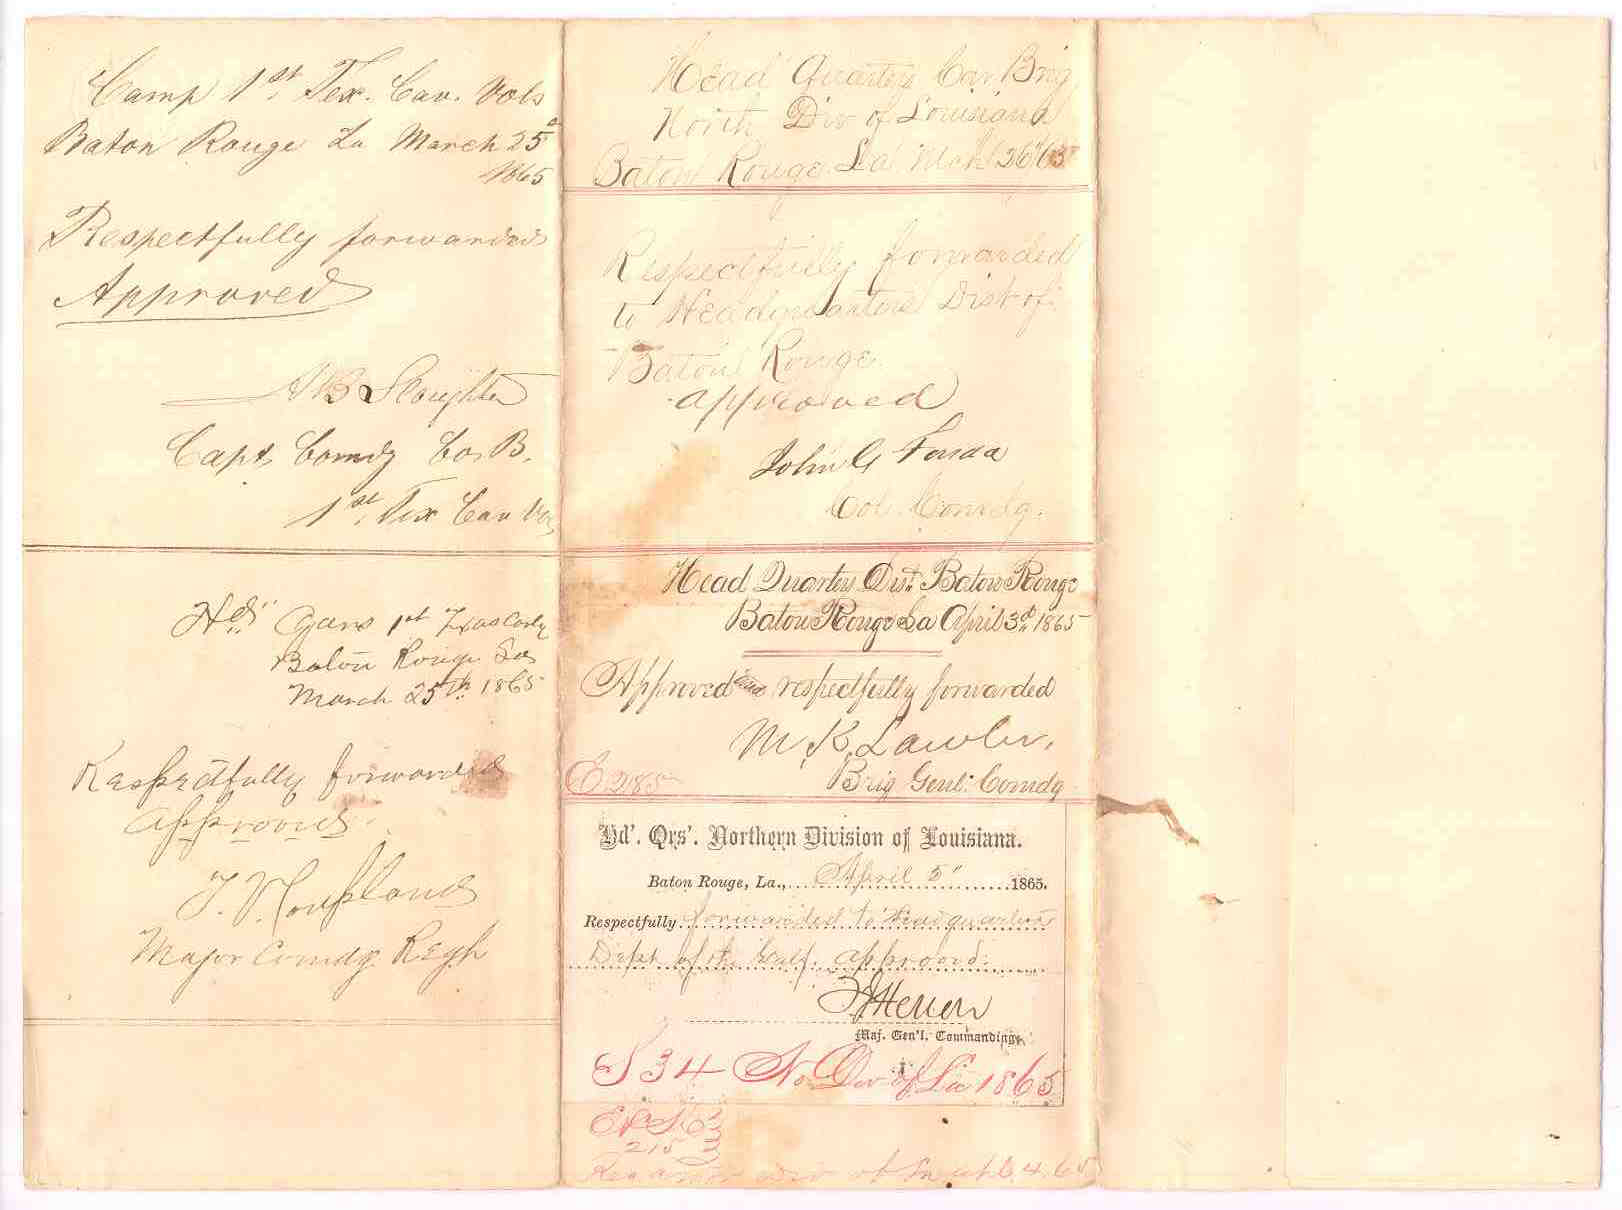 Camp 1st Tex. Cav. Vols
Baton Rouge La March 25"
1865
Respectfully forwarded
Approved
A B Slaughter
Capt Comdg Co. B.
1st Tex Cav Vol
Hd" Qrs 1st Texas Cavly
Baton Rouge La
March 25th 1865
Respectfully forwarded
approved
Major Comdg Regt
Head Quarters Cav Brig
North Div of Louisiana
Baton Rouge La Mch 26 65
Respectfully forwarded
to Headquarters Dist of
Baton Rouge
approved
John G Fonda
Col Comdg.
Head Quarters Dist. Baton Rouge
Baton Rouge La April 3d 1865
Approved and respectfully forwarded
M. K. Lawler,
Brig Genl: Comdg
E 285
Hd'. Qrs'. Northern Division of Louisiana.
Baton Rouge, La., April 5" 1865.
Respectfully forwarded to Headquarters
Dept of the Gulf. approved.
F J Herron
Maj. Gen'l. Commanding.
S 34 No Div of La 1865
215